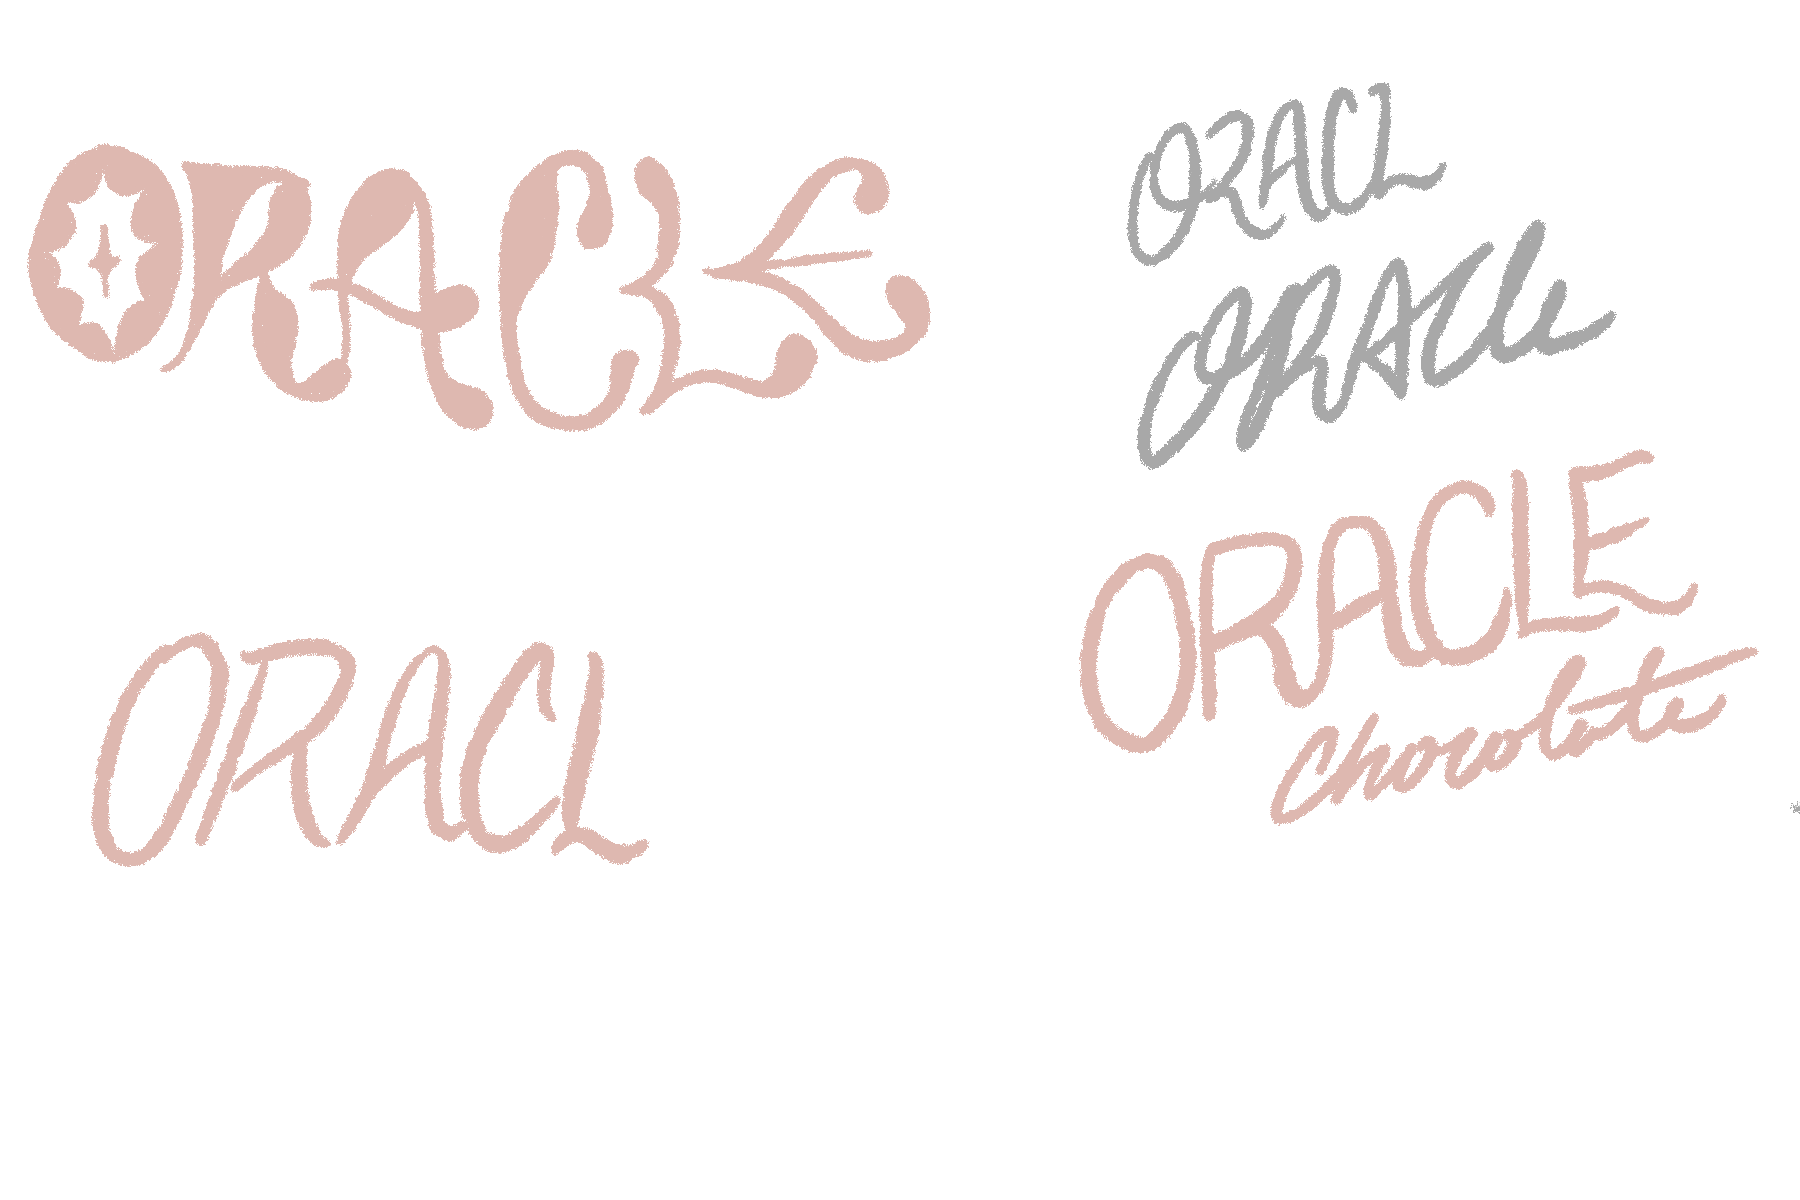 ORACLE
ORACL
ORACL
ORACle
ORACLE
Chocolate